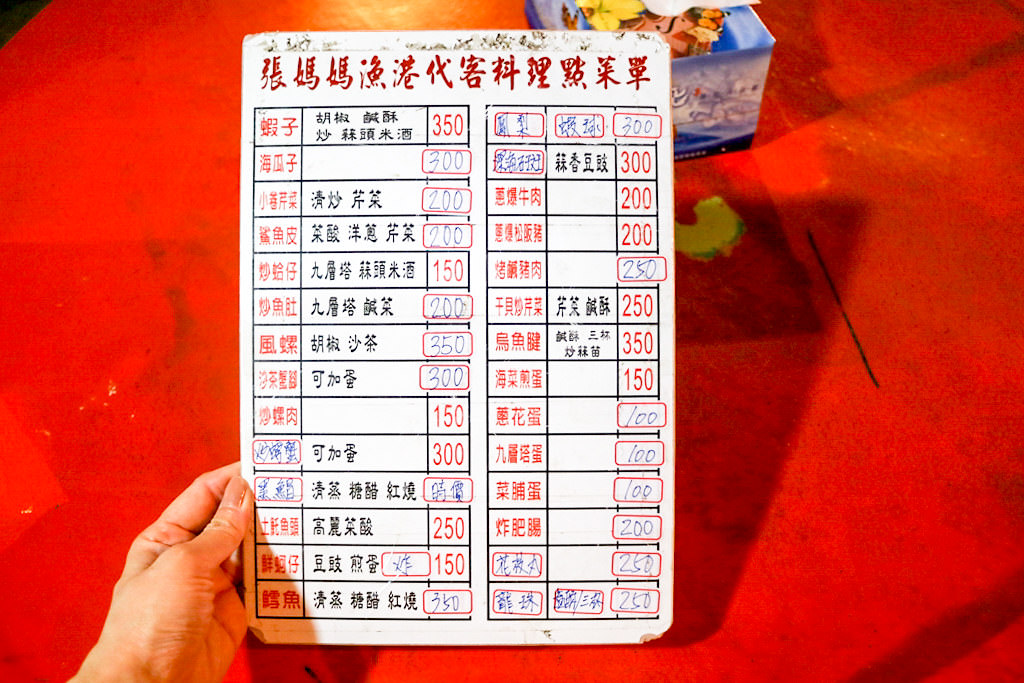 張媽媽漁港代客料理點菜單
蝦子 胡椒 鹹酥 炒 蒜頭米酒 350
海瓜子 300
小卷芹菜 清炒 芹菜 200
鯊魚皮 菜酸 洋蔥 芹菜 200
炒蛤仔 九層塔 蒜頭米酒 150
炒魚肚 九層塔 鹹菜 200
風螺 胡椒 沙茶 350
沙茶蟹腳 可加蛋 300
炒螺肉 150
可加蛋 300
清蒸 糖醋 紅燒 時價
土魠魚頭 高麗菜酸 250
鮮蚵仔 豆豉 煎蛋 炸 150
鱈魚 清蒸 糖醋 紅燒 350
鳳梨 蝦球 300
蒜香豆豉 300
蔥爆牛肉 200
蔥爆松阪豬 200
烤鹹豬肉 250
干貝炒芹菜 芹菜 鹹酥 250
烏魚腱 鹹酥 三杯 炒蒜苗 350
海菜煎蛋 150
蔥花蛋 100
九層塔蛋 100
菜脯蛋 100
炸肥腸 200
花枝丸 250
龍珠 鹹酥/三杯 250